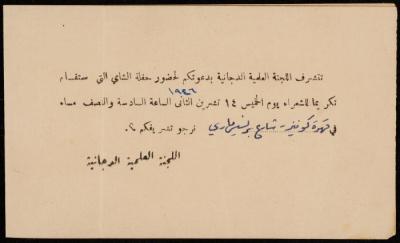 تتشرف اللجنة العلمية الدجانية بدعوتكم لحضور حفلة الشاي التي ستقام
١٩٤٦
تكريما للشعراء يوم الخميس ١٤ تشرين الثاني الساعة السادسة والنصف مساء
في قهوة كوفنير - شارع برنسس ماري نرجو تشريفكم ؟
اللجنة العلمية الدجانية